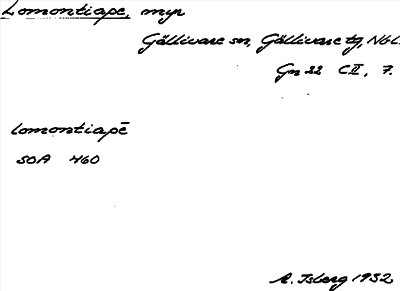 Lomontiape, myr
Gällivare sn, Gällivare tg, Nbl.
Gn 22 C II, 7.
lomontiapē
SOA 460
A. Isberg 1932